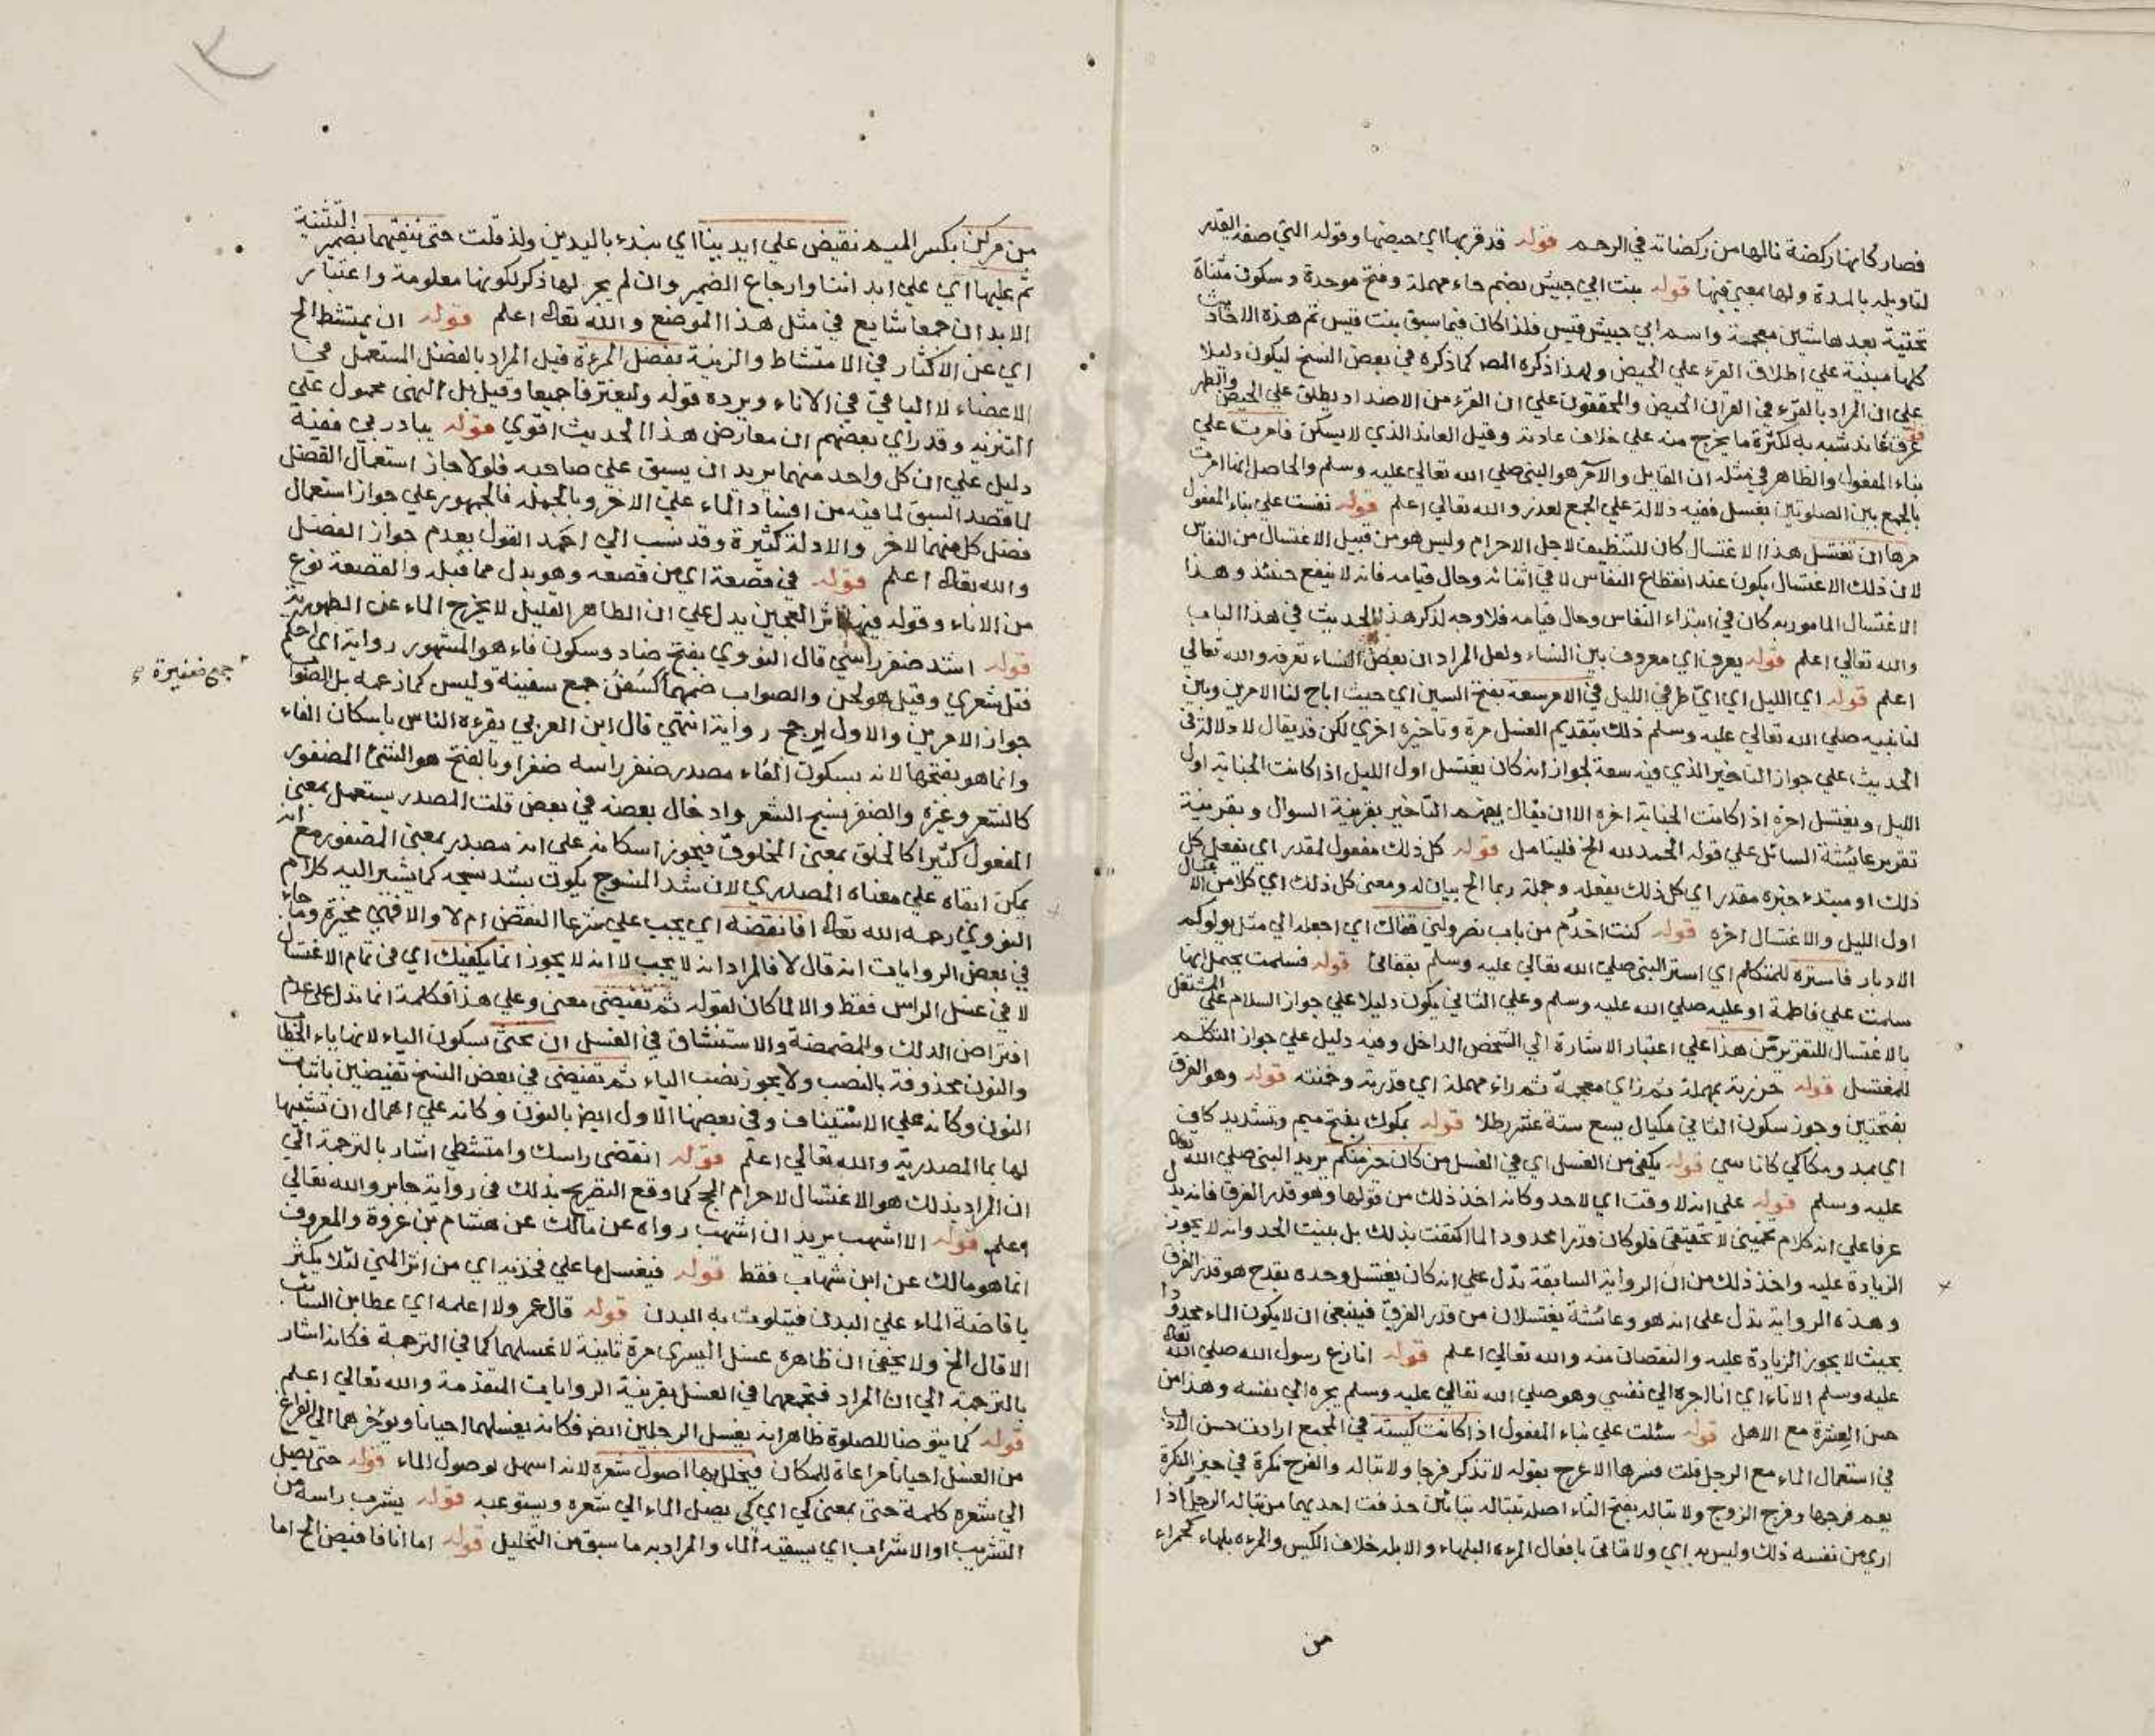 فصار كانها ركضة نالها من ركضاته في الرحم قوله قد قربها اي حيضها وقوله التي صفة القدر
لتاويله بالمدة ولها بمعنى فيها قوله بنت ابي حبيش بضم حاء مهملة وفتح موحدة وسكون مثناة
تحتية بعدها شين معجمة واسم ابي حبيش قيس فلذا كان فيما سبق بنت قيس ثم هذه الاحاديث
كلها مبنية على اطلاق القرء علي الحيض ولهذا ذكره المص كما ذكره في بعض النسخ ليكون دليلا
علي ان المراد بالقرء في القران الحيض والمحققون علي ان القرء من الاضداد يطلق علي الحيض والطهر
قوله عرق عاند شبه به لكثرة ما يخرج منه علي خلاف عادته وقيل العاند الذي لا يسكن فامرت علي
بناء المفعول والظاهر في مثله ان القايل والآمر هو النبي صلي الله تعالي عليه وسلم والحاصل انها امرت
بالجمع بين الصلوتين بغسل ففيه دلالة علي الجمع لعذر والله تعالي اعلم قوله نفست علي بناء المفعول
مرها ان تغتسل هذا الاغتسال كان للتنظيف لاجل الاحرام وليس هو من قبيل الاغتسال من النفاس
لان ذلك الاغتسال يكون عند انقطاع النفاس لا في اثنائه وحال قيامه فانه لا ينفع حينئذ وهذا
الاغتسال المامور به كان في ابتداء النفاس وحال قيامه فلا وجه لذكر هذا الحديث في هذا الباب
والله تعالي اعلم قوله يعرف اي معروف بين النساء ولعل المراد ان بعض النساء تعرفه والله تعالي
اعلم قوله اي الليل اي اي طرفي الليل في الامر سعة بفتح السين اي حيث اباح لنا الامرين وبين
لنا نبيه صلي الله تعالي عليه وسلم ذلك بتقديم الغسل مرة وتاخيره اخري لكن قد يقال لا دلالة في
الحديث علي جواز التاخير الذي فيه سعة لجواز انه كان يغتسل اول الليل اذا كانت الجنابة اول
الليل ويغتسل اخره اذا كانت الجنابة اخره الا ان يقال يفهم التاخير بقرينة السوال وبقرينة
تقرير عائشة السائل علي قوله الحمد لله الخ فليتامل قوله كل ذلك مفعول لمقدر اي يفعل كل
ذلك او مبتدء خبره مقدر اي كل ذلك يفعله وجملة ربما الخ بيان له ومعنى كل ذلك اي كلا من الاغتسال
اول الليل والاغتسال اخره قوله كنت اخدم من باب نصر ولني قفاك اي اجعله الي مثل يولوكم
الادبار فاستره للمتكلم اي استر النبي صلي الله تعالي عليه وسلم بقفائ قوله فسلمت يحتمل انها
سلمت علي فاطمة او عليه صلي الله عليه وسلم وعلي الثاني يكون دليلا علي جواز السلام علي المشتغل
بالاغتسال للتقرير من هذا علي اعتبار الاشارة الي الشخص الداخل وفيه دليل علي جواز التكلم
للمغتسل قوله حزرته بمهملة ثم زاي معجمة ثم راء مهملة اي قدرته وخمنته قوله وهو الفرق
بفتحتين وجوز سكون الثاني مكيال يسع ستة عشر رطلا قوله بمكوك بفتح ميم وتشديد كاف
اي بمد ومكاكي كاناسي قوله يكفي من الغسل اي في الغسل من كان خير منكم يريد النبي صلي الله تعالى
عليه وسلم قوله علي انه لا وقت اي لاحد وكانه اخذ ذلك من قولها وهو قدر الفرق فانه يدل
عرفا علي انه كلام تخميني لا تحقيقي فلو كان قدرا محدودا لما اكتفت بذلك بل بينت الحد وانه لا يجوز
الزيادة عليه واخذ ذلك من ان الرواية السابقة تدل علي انه كان يغتسل وحده بقدح هو قدر الفرق
وهذه الرواية تدل علي انه هو وعائشة يغتسلان من قدر الفرق فينبغي ان لا يكون الماء محدودا
بحيث لا يجوز الزيادة عليه والنقصان منه والله تعالي اعلم قوله انازع رسول الله صلي الله تعالى
عليه وسلم الاناء اي انا اجره الي نفسي وهو صلي الله تعالي عليه وسلم يجره الي نفسه وهذا من
حسن العشرة مع الاهل قوله سئلت علي بناء المفعول اذا كانت كيسة في المجمع ارادت حسن الادب
في استعمال الماء مع الرجل قلت فسرها الاعرج بقوله لا تذكر فرجا ولا تباله والفرج نكرة في حيز النكرة
يعم فرجها وفرج الزوج ولا تباله بفتح التاء اصله تتباله بتائين حذفت احديهما من تباله الرجل اذا
اري من نفسه ذلك وليس به اي ولا تاتي بافعال المرءة البلهاء والابله خلاف الكيس والمرءة بلهاء كحمراء
من
من مركن بكسر الميم نفيض علي ايدينا اي يبدء باليدين ولذ قلت حتى ننقيهما بضمير التثنية
ثم عليها اي علي ابداننا وارجاع الضمير وان لم يجر لها ذكر لكونها معلومة واعتبار
الابدان جمعا شايع في مثل هذا الموضع والله تعالى اعلم قوله ان يمتشط الخ
اي عن الاكثار في الامتشاط والزينة بفضل المرءة قيل المراد بالفضل المستعمل في
الاعضاء لا الباقي في الاناء ويرده قوله وليغترفا جميعا وقيل بل النهي محمول علي
التنزيه وقد راي بعضهم ان معارض هذا الحديث اقوي قوله يبادرني ففيه
دليل علي ان كل واحد منهما يريد ان يسبق علي صاحبه فلولا جاز استعمال الفضل
لما قصد السبق لما فيه من افساد الماء علي الاخر وبالجملة فالجمهور علي جواز استعمال
فضل كل منهما لاخر والادلة كثيرة وقد نسب الي احمد القول بعدم جواز الفضل
والله تعالى اعلم قوله في قصعة اي من قصعة وهو بدل مما قبله والقصعة نوع
من الاناء وقوله فيها اثر العجين يدل علي ان الطاهر القليل لا يخرج الماء عن الطهورية
قوله اشد ضفر راسي قال النووي بفتح ضاد وسكون فاء هو المشهور رواية اي احكم
فتل شعري وقيل هو لحن والصواب ضمهما كسفن جمع سفينة وليس كما زعمه بل الصواب
جمع ضفيرة
جواز الامرين والاول ارجح رواية انتهي قال ابن العربي يقرءه الناس باسكان الفاء
وانما هو بفتحها لانه بسكون الفاء مصدر ضفر راسه ضفرا وبالفتح هو الشئ المضفور
كالشعر وغيره والضفر نسج الشعر وادخال بعضه في بعض قلت المصدر يستعمل بمعنى
المفعول كثيرا كالخلق بمعنى المخلوق فيجوز اسكانه علي انه مصدر بمعنى المضفور مع انه
يمكن ابقاه علي معناه المصدري لان شد المنسوج يكون بشد نسجه كما يشير اليه كلام
النووي رحمه الله تعالى افانقضه اي يجب علي شرعا النقض ام لا والا فهي مخيرة وما جاء
في بعض الروايات انه قال لا فالمراد انه لا يجب لا انه لا يجوز انما يكفيك اي في تمام الاغتسال
لا في غسل الراس فقط والا لما كان لقوله ثم تفيضي معنى وعلي هذا فكلمة انما تدل علي عدم
افتراض الدلك والمضمضة والاستنشاق في الغسل ان تحثي بسكون الياء لانها ياء الخطاب
والنون محذوفة بالنصب ولا يجوز نصب الياء ثم تفيضي في بعض النسخ تفيضين باثبات
النون وكانه علي الاستيناف وفي بعضها الاول ايض بالنون وكانه علي اهمال ان تشبيها
لها بما المصدرية والله تعالي اعلم قوله انقضي راسك وامتشطي اشار بالترجمة الي
ان المراد بذلك هو الاغتسال لاحرام الحج كما وقع التصريح بذلك في رواية جابر والله تعالي
اعلم قوله الا اشهب يريد ان اشهب رواه عن مالك عن هشام بن عروة والمعروف
انما هو مالك عن ابن شهاب فقط قوله فيغسل ما علي فخذيه اي من اثر المني لئلا يكثر
بافاضة الماء علي البدن فيتلوث به البدن قوله قال عمر ولا اعلمه اي عطا بن السائب
الا قال الخ ولا يخفى ان ظاهره غسل اليسرى مرة ثانية لا غسلهما كما في الترجمة فكانه اشار
بالترجمة الي ان المراد فيجمعهما في الغسل بقرينة الروايات المتقدمة والله تعالي اعلم
قوله كما يتوضا للصلوة ظاهر انه يغسل الرجلين ايض فكانه يغسلهما احيانا ويؤخرهما الي الفراغ
من الغسل احيانا مراعاة للمكان فيخلل بها اصول شعره لانه اسهل لوصول الماء قوله حتى يصل
الي شعره كلمة حتى بمعنى كي اي كي يصل الماء الي شعره ويستوعبه قوله يشرب راسه من
التشريب او الاشراب اي يسقيه الماء والمراد به ما سبق من التخليل قوله اما انا فافيض الخ اما